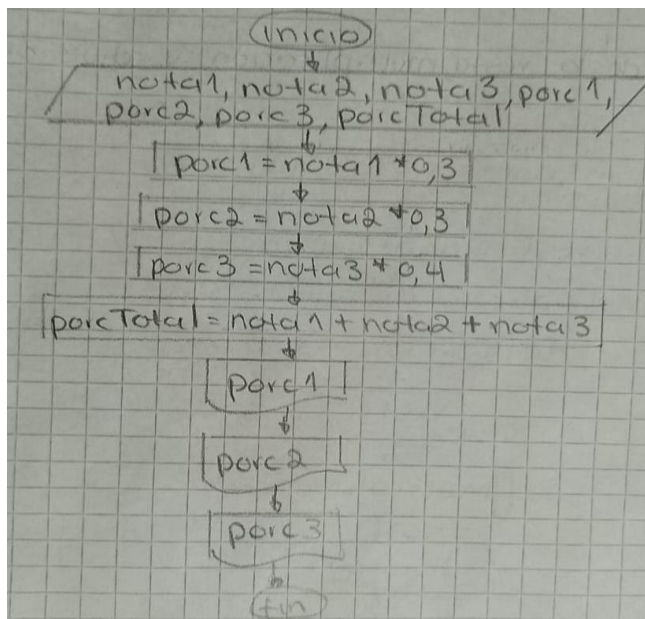 inicio
nota1, nota2, nota3, porc1,
porc2, porc3, porcTotal
porc1 = nota1 * 0,3
porc2 = nota2 * 0,3
porc3 = nota3 * 0,4
porcTotal = nota1 + nota2 + nota3
porc1
porc2
porc3
fin